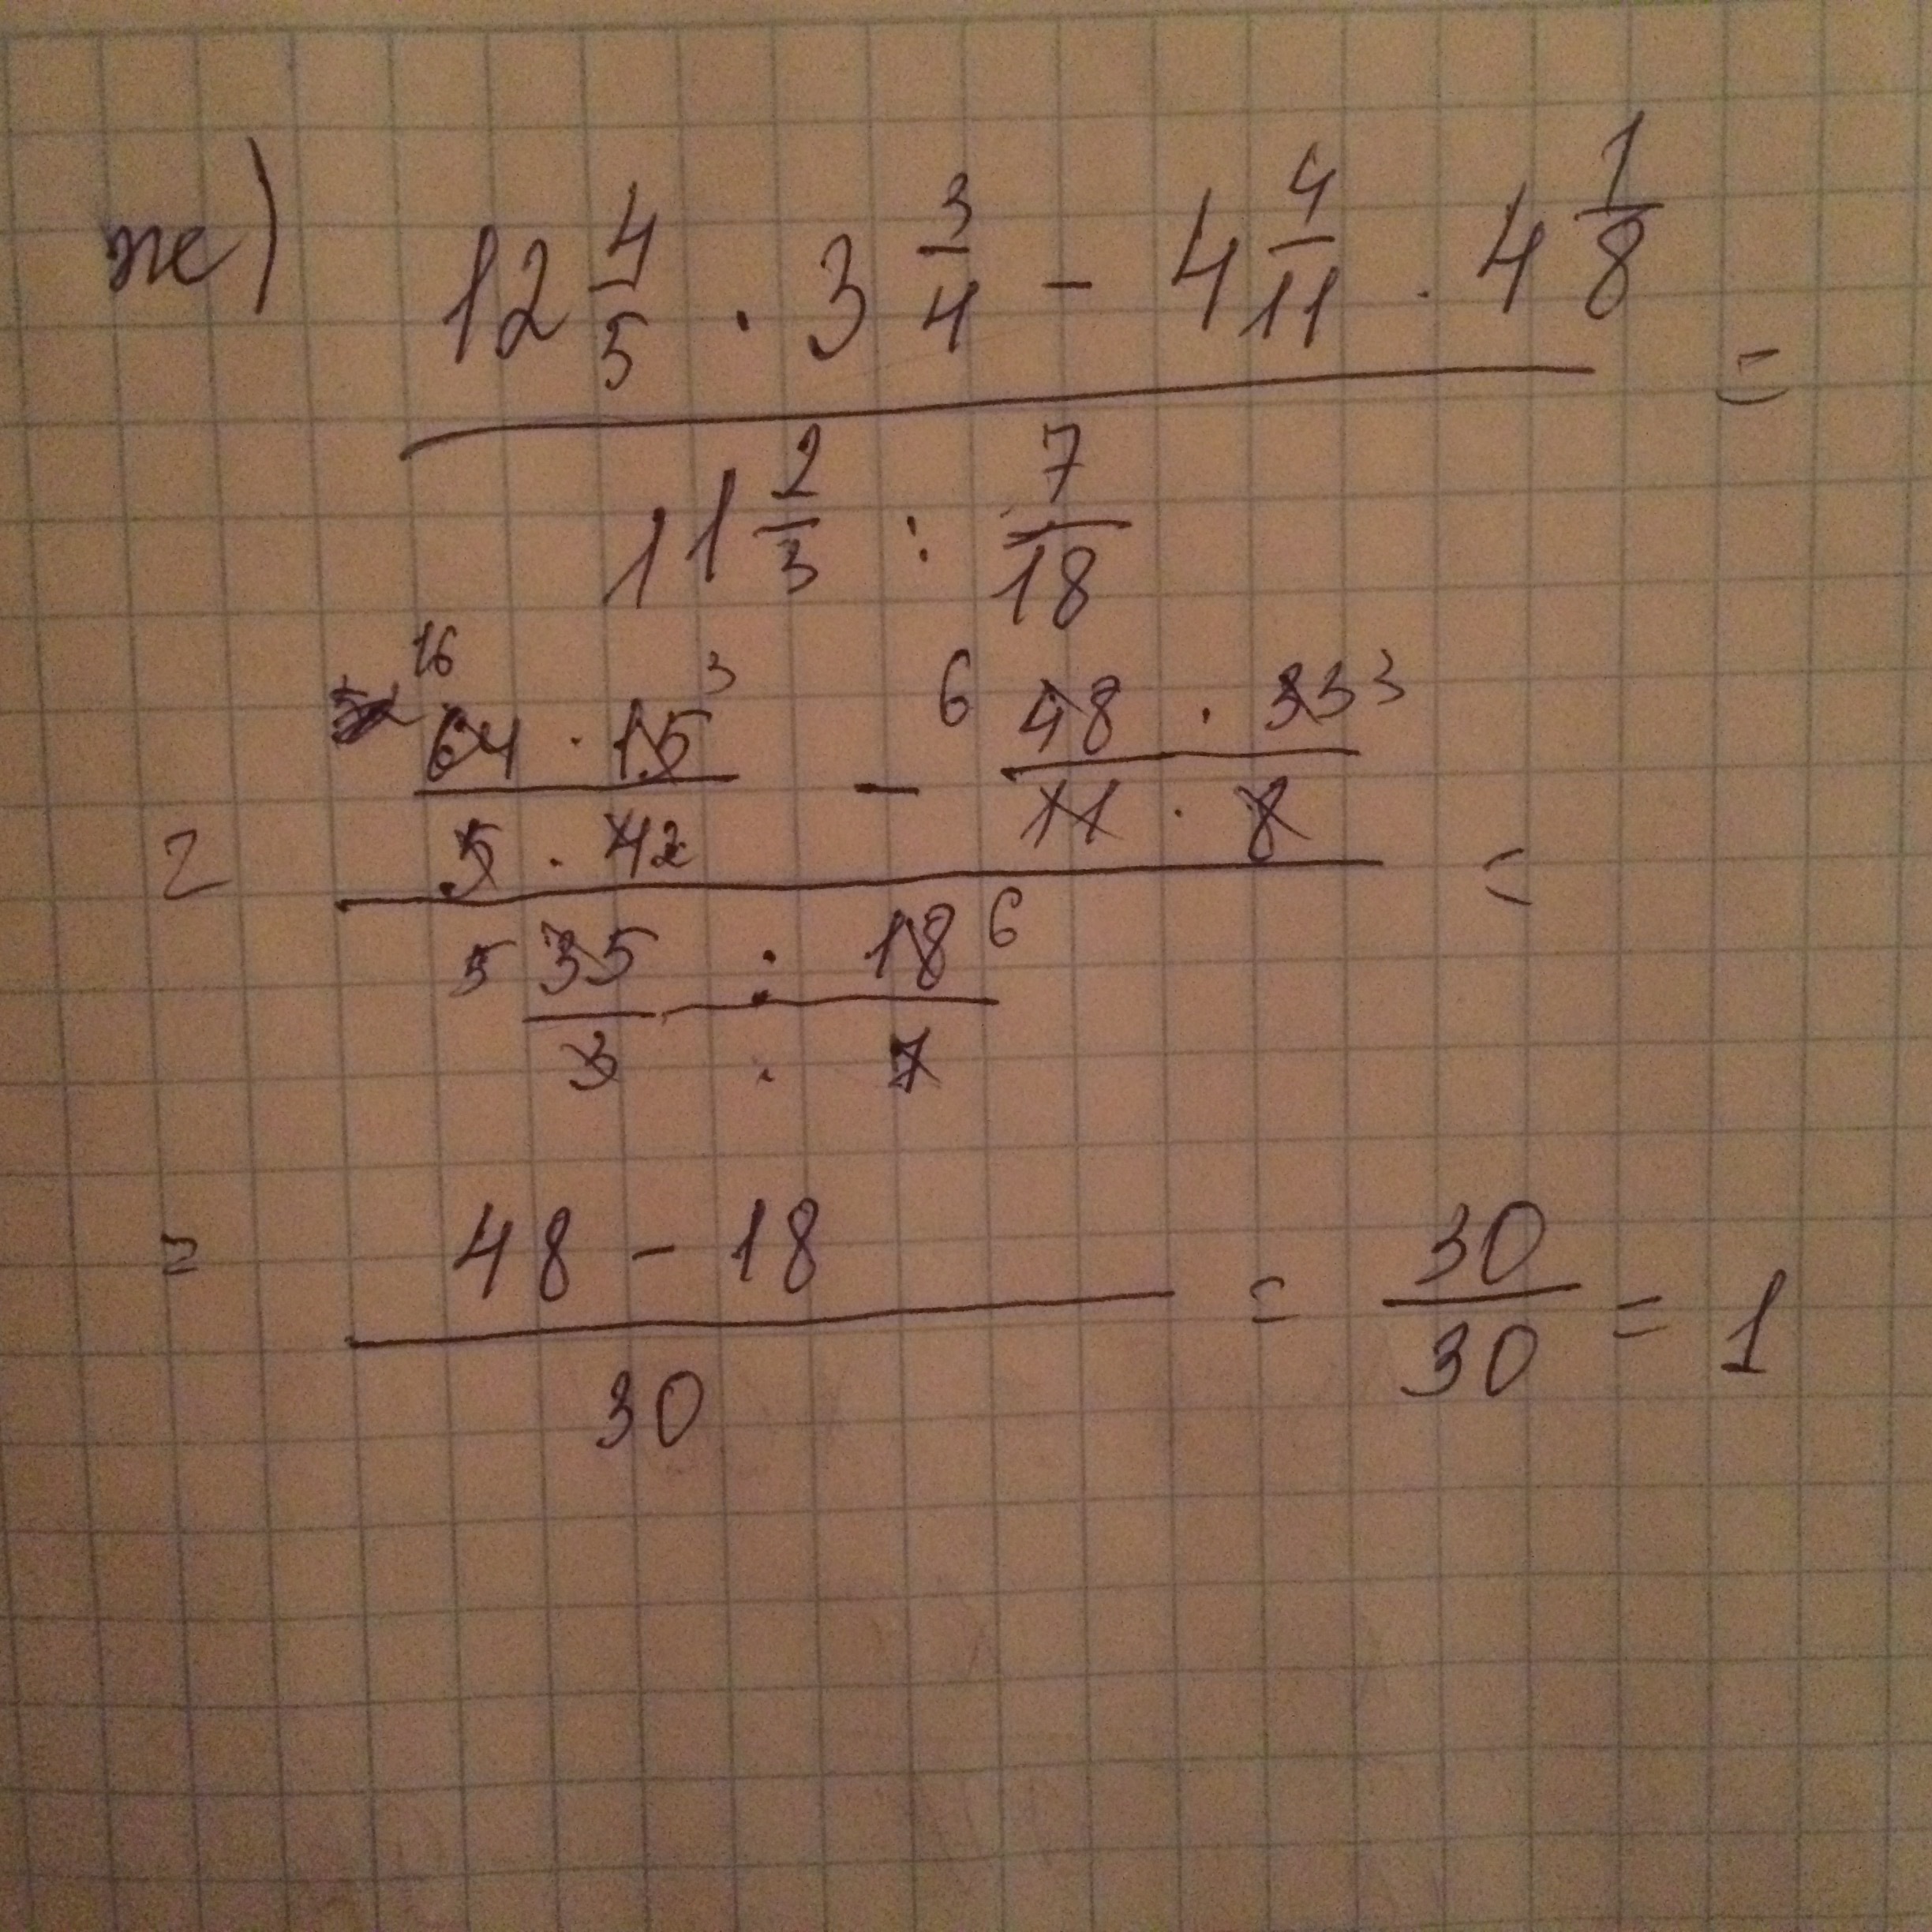 ж) 12 4/5 · 3 3/4 - 4 4/11 · 4 1/8 =
11 2/3 : 7/18
16 3 6 3
= 64 · 15 / 5 · 4 2 - 48 · 33 / 11 · 8 =
5 35 : 18 6
3 · 7
= 48 - 18 / 30 = 30/30 = 1